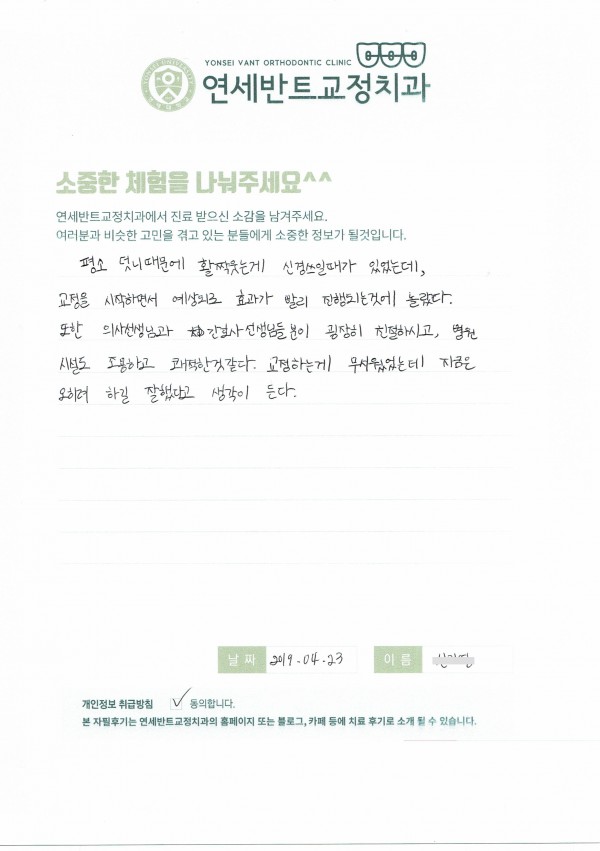 YONSEI UNIVERSITY
YONSEI VANT ORTHODONTIC CLINIC
연세반트교정치과
소중한 체험을 나눠주세요^^
연세반트교정치과에서 진료 받으신 소감을 남겨주세요.
여러분과 비슷한 고민을 겪고 있는 분들에게 소중한 정보가 될것입니다.
평소 덧니때문에 활짝웃는게 신경쓰일때가 있었는데,
교정을 시작하면서 예상외로 효과가 빨리 진행되는것에 놀랐다.
또한 의사선생님과 간호사선생님들 분이 굉장히 친절하시고, 병원
시설도 조용하고 쾌적한것같다. 교정하는게 무서웠었는데 지금은
오히려 하길 잘했다고 생각이 든다.
날 짜 2019-04-23 이 름
개인정보 취급방침 ✓ 동의합니다.
본 자필후기는 연세반트교정치과의 홈페이지 또는 블로그, 카페 등에 치료 후기로 소개 될 수 있습니다.